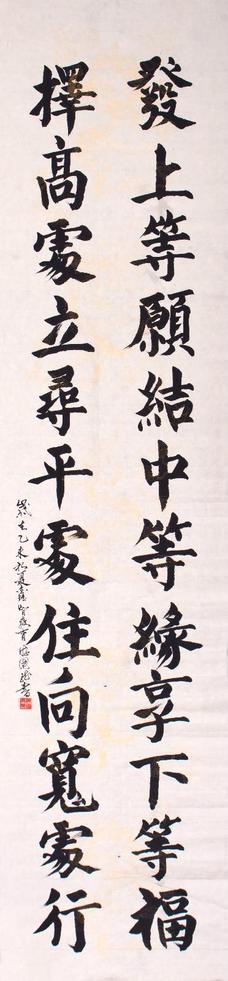 發上等願結中等緣享下等福
擇高處立尋平處住向寬處行
歲在乙未